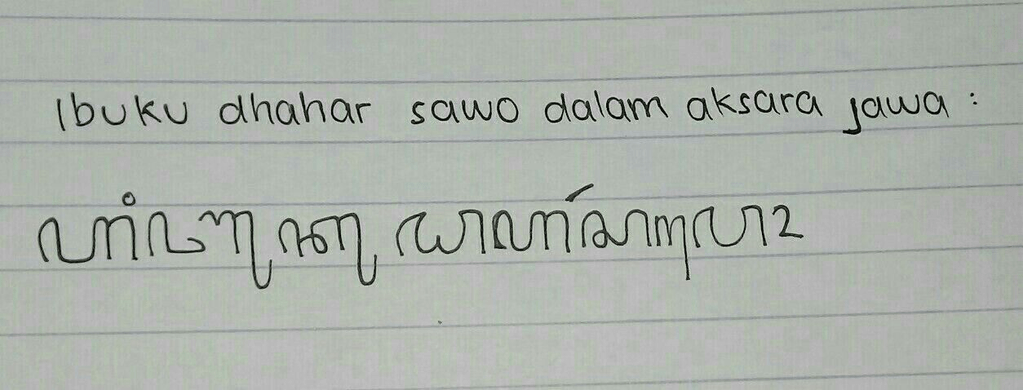 Ibuku dhahar sawo dalam aksara jawa :
ꦲꦶꦧꦸꦏꦸꦝꦲꦂꦱꦮꦺꦴ